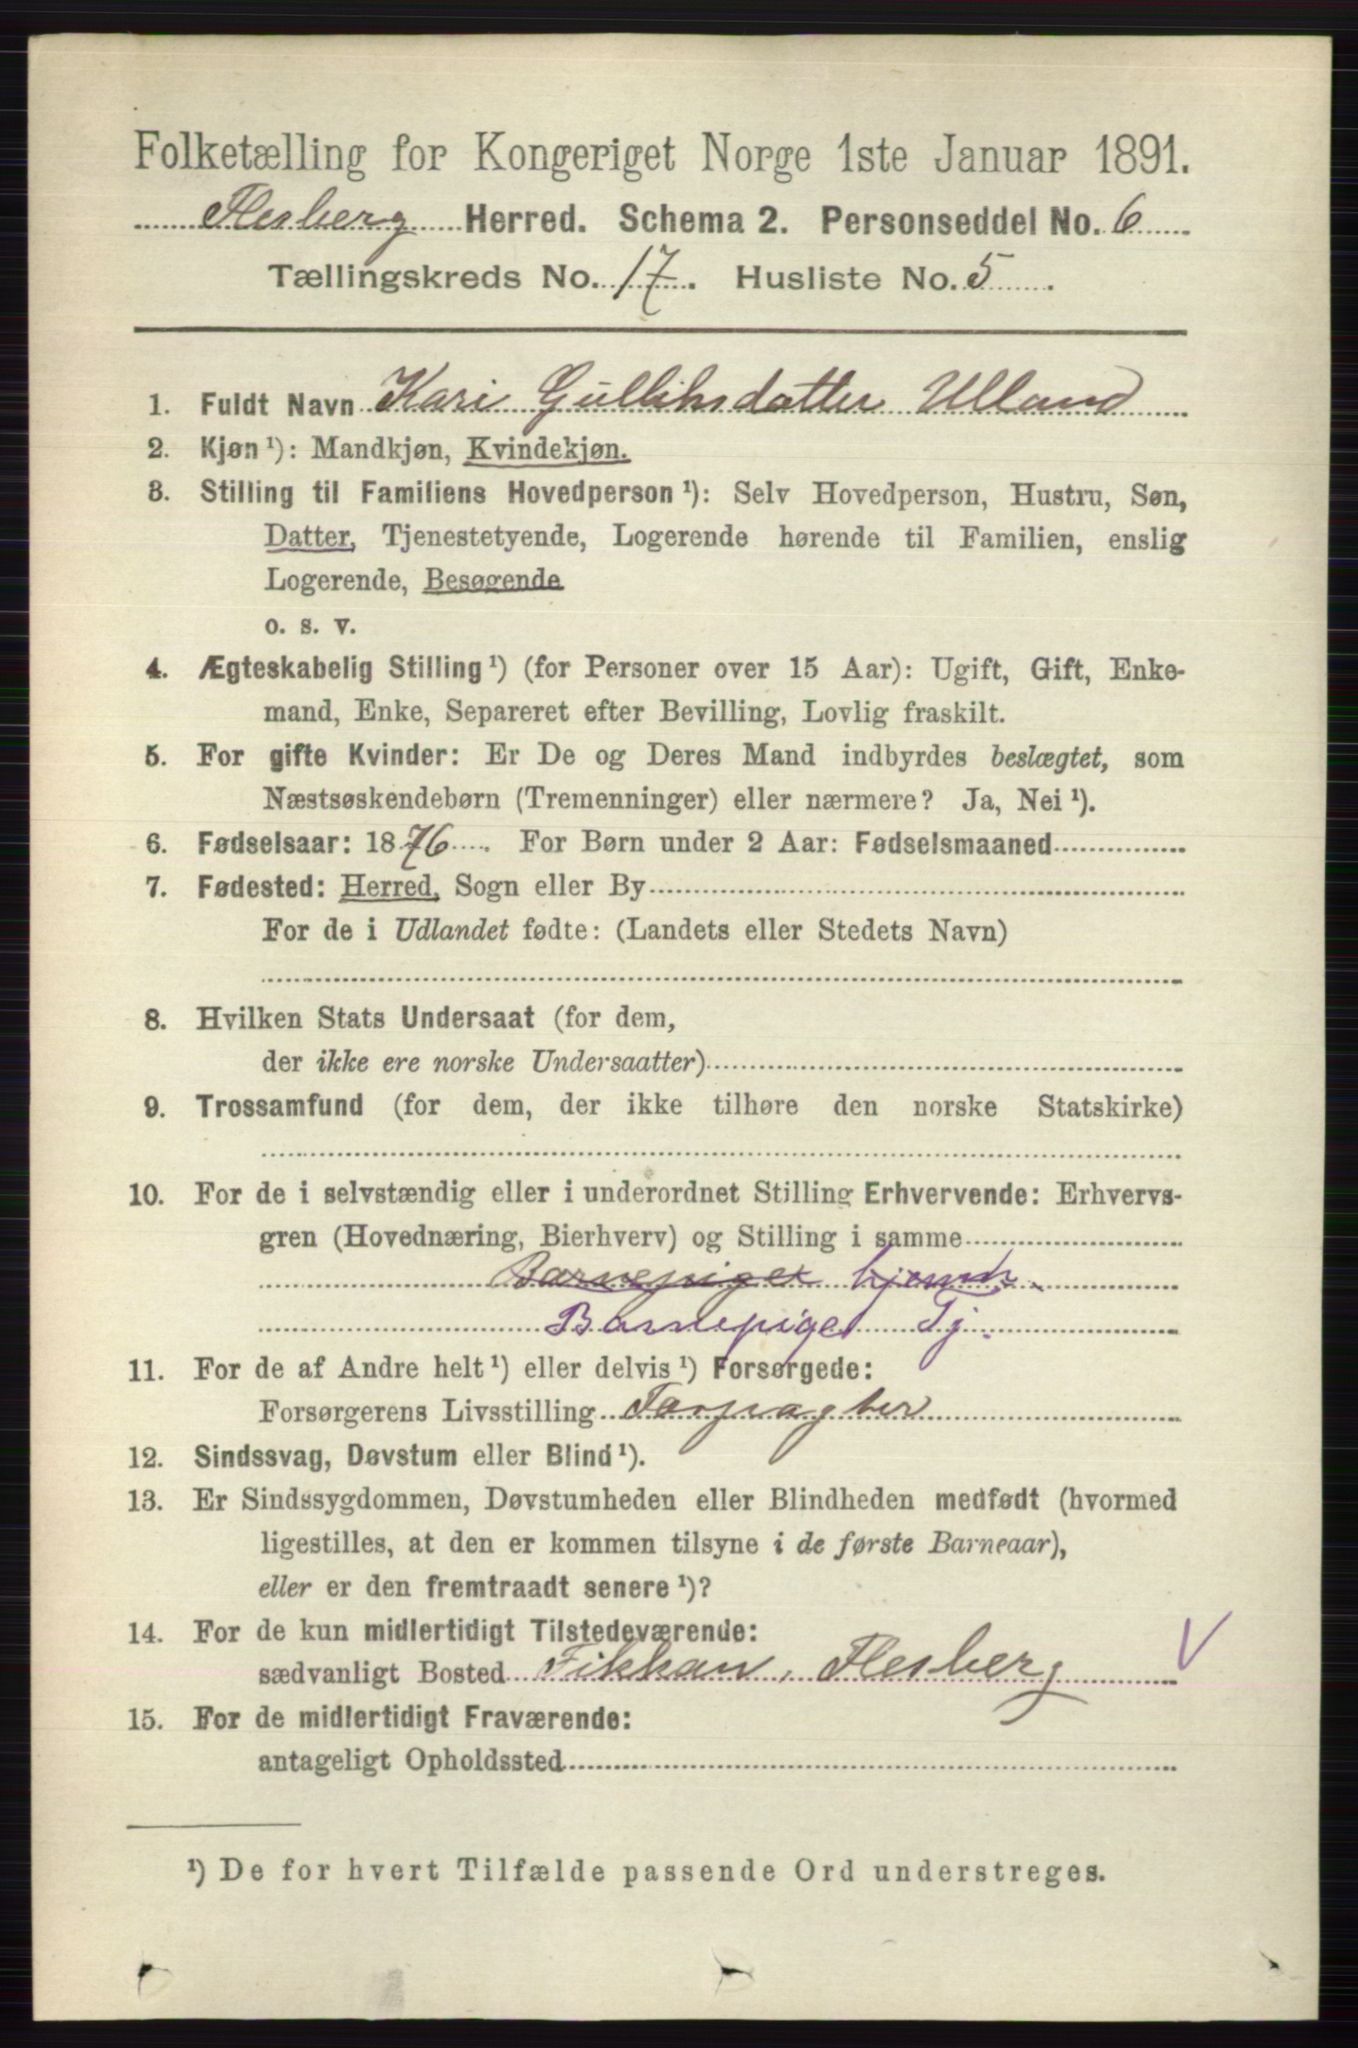 Folketælling for Kongeriget Norge 1ste Januar 1891.
Flesberg Herred. Schema 2. Personseddel No. 6
Tællingskreds No. 17. Husliste No. 5.
1. Fuldt Navn Kari Gulliksdatter Ulland
2. Kjøn ¹): Mandkjøn, Kvindekjøn.
3. Stilling til Familiens Hovedperson ¹): Selv Hovedperson, Hustru, Søn,
Datter, Tjenestetyende, Logerende hørende til Familien, enslig
Logerende, Besøgende
o. s. v.
4. Ægteskabelig Stilling ¹) (for Personer over 15 Aar): Ugift, Gift, Enke-
mand, Enke, Separeret efter Bevilling, Lovlig fraskilt.
5. For gifte Kvinder: Er De og Deres Mand indbyrdes beslægtet, som
Næstsøskendebørn (Tremenninger) eller nærmere? Ja, Nei ¹).
6. Fødselsaar: 1876. For Børn under 2 Aar: Fødselsmaaned
7. Fødested: Herred, Sogn eller By
For de i Udlandet fødte: (Landets eller Stedets Navn)
8. Hvilken Stats Undersaat (for dem,
der ikke ere norske Undersaatter)
9. Trossamfund (for dem, der ikke tilhøre den norske Statskirke)
10. For de i selvstændig eller i underordnet Stilling Erhvervende: Erhvervs-
gren (Hovednæring, Bierhverv) og Stilling i samme
Barnepiget
Barnepige Tj.
11. For de af Andre helt ¹) eller delvis ¹) Forsørgede:
Forsørgerens Livsstilling
12. Sindssvag, Døvstum eller Blind ¹).
13. Er Sindssygdommen, Døvstumheden eller Blindheden medfødt (hvormed
ligestilles, at den er kommen tilsyne i de første Barneaar),
eller er den fremtraadt senere ¹)?
14. For de kun midlertidigt Tilstedeværende:
sædvanligt Bosted Fikkan, Flesberg V
15. For de midlertidigt Fraværende:
antageligt Opholdssted
¹) De for hvert Tilfælde passende Ord understreges.